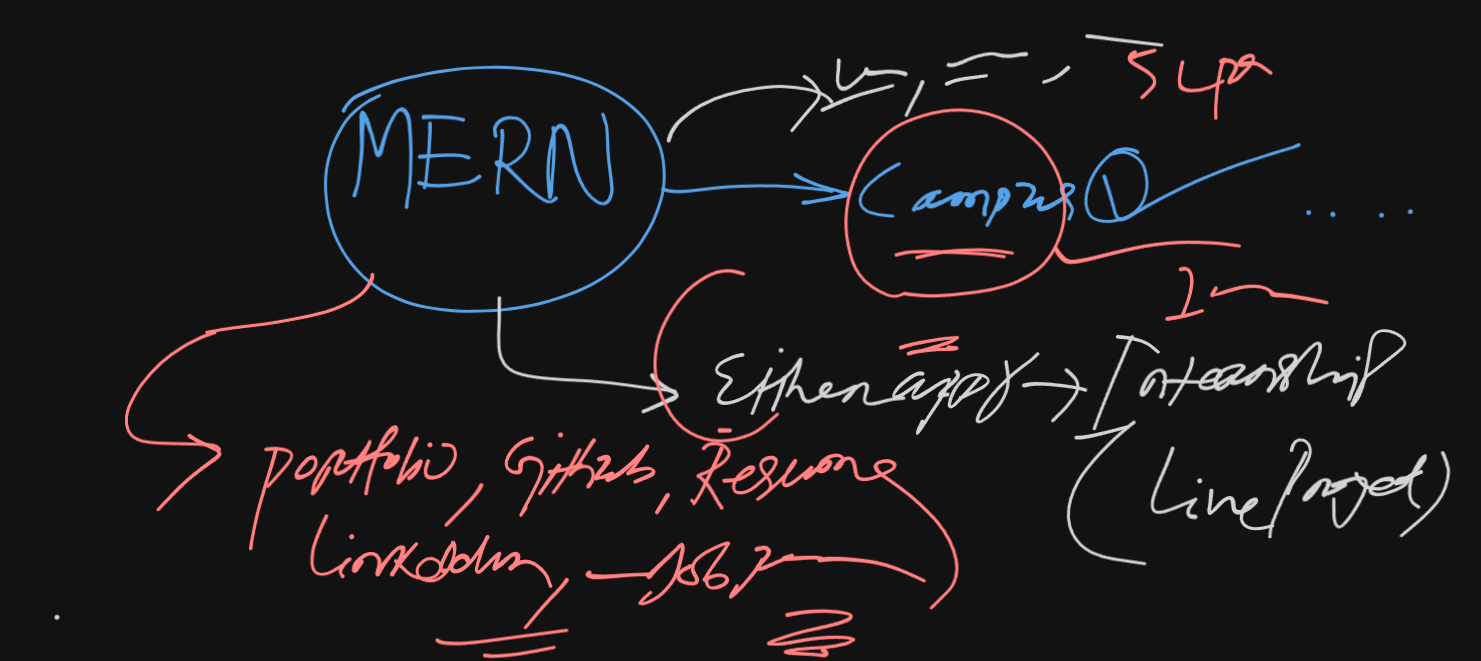 5 Lpa
MERN
Campus 1
Either app → Internship
(Live Project)
portfolio, GitHub, Resume
LinkedIn, Job